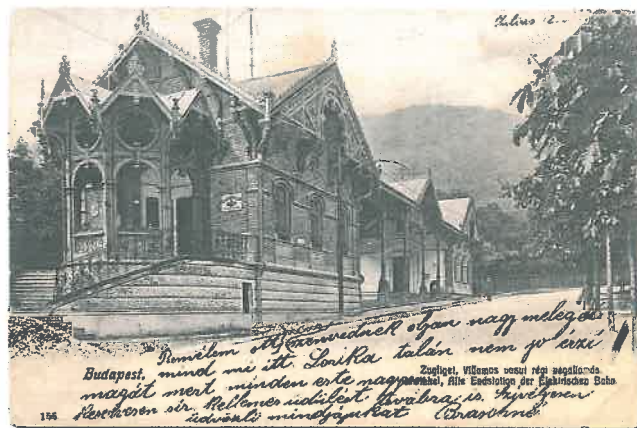 Julius 2.
Remélem ott nincs szenvednek olyan nagy meleget
mind mi itt. Lonka talán nem jo érzi
magát mert minden este nagyon
keservesen sir. Kellemes üdülést továbbra is. Szivélyesen
üdvözli mindnyájukat
Budapest.
Zugliget, Villamos vasut régi végállomás
Auwinkel, Alte Endstation der Elektrischen Bahn
156